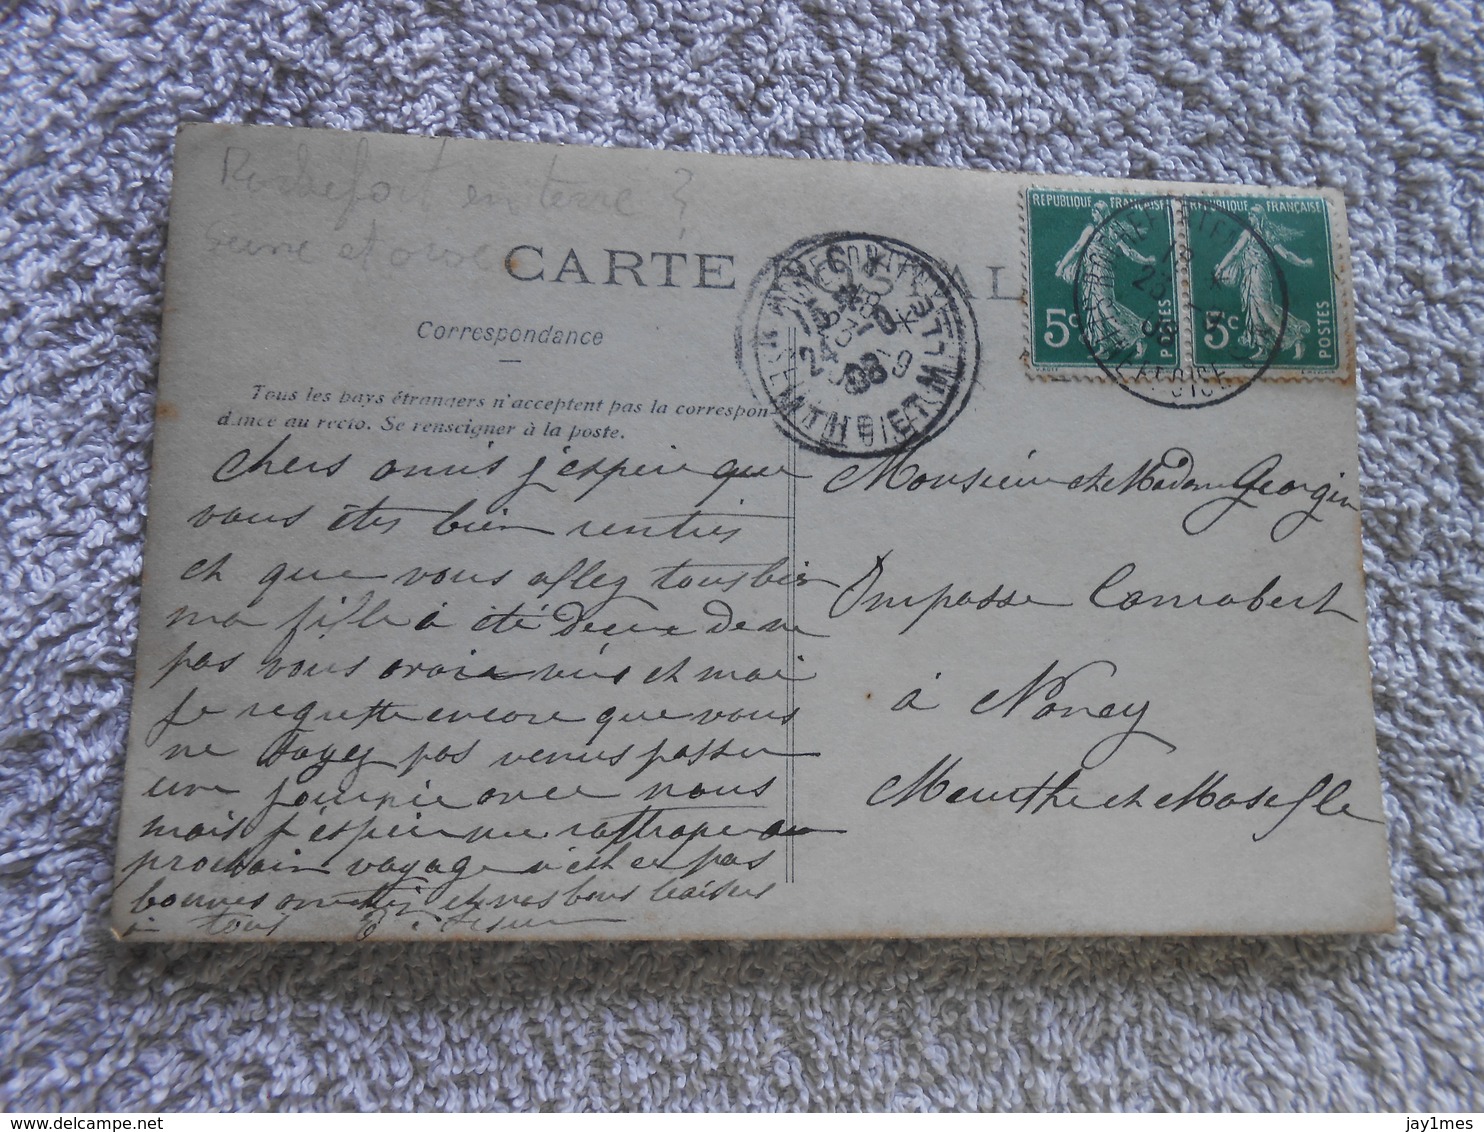 Rochefort en terre ?
Seine et oise
CARTE AL
Correspondance
Tous les pays étrangers n'acceptent pas la correspon-
dance au recto. Se renseigner à la poste.
REPUBLIQUE FRANÇAISE
5c POSTES
REPUBLIQUE FRANÇAISE
5c POSTES
chers amis j'espère que
vous êtes bien rentrés
et que vous allez tous bien
ma fille à été de ne
pas vous avoir vus et moi
je regrette encore que vous
ne soyez pas venus passer
une journée avec nous
mais j'espère me rattraper au
prochain voyage n'est ce pas
bonnes amitiés et nos bons baisers
à tous
Monsieur et Madame Georgin
Impasse Canrobert
à Nancy
Meurthe et Moselle
jay1mes